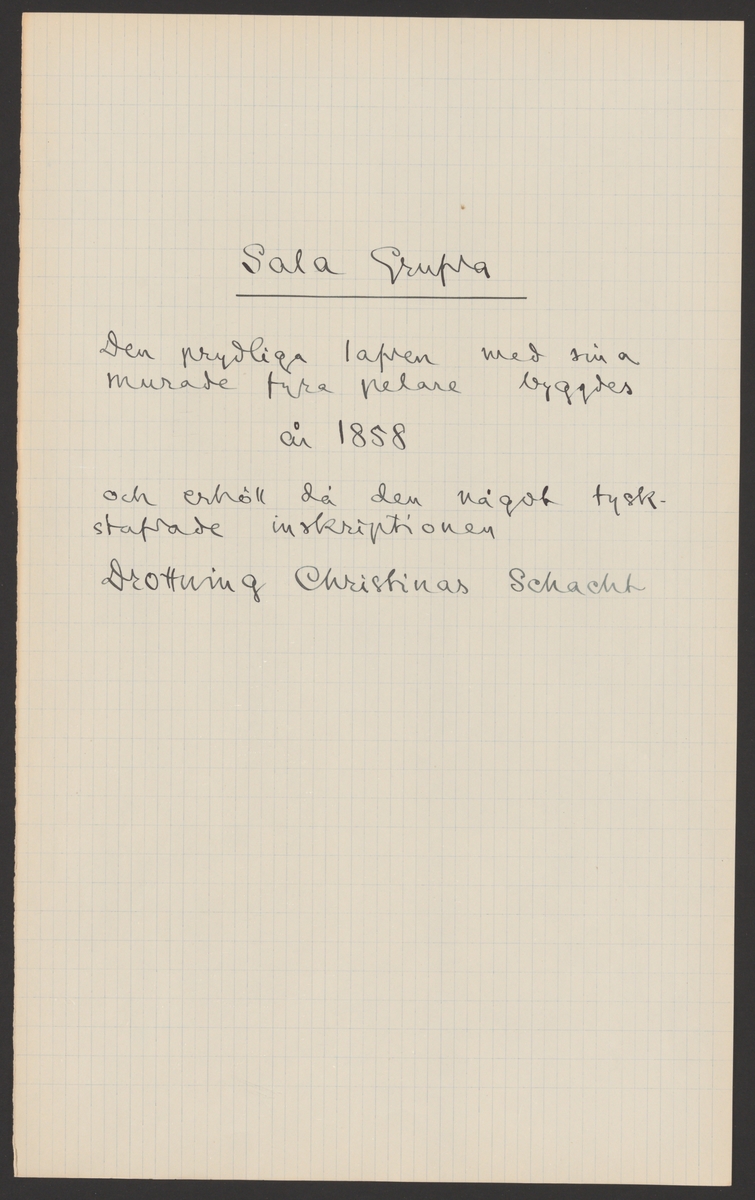 Sala Grufva
Den prydliga lafven med sina
murade fyra pelare byggdes
år 1858
och erhöll då den något tysk-
stafvade inskriptionen
Drottning Christinas Schacht